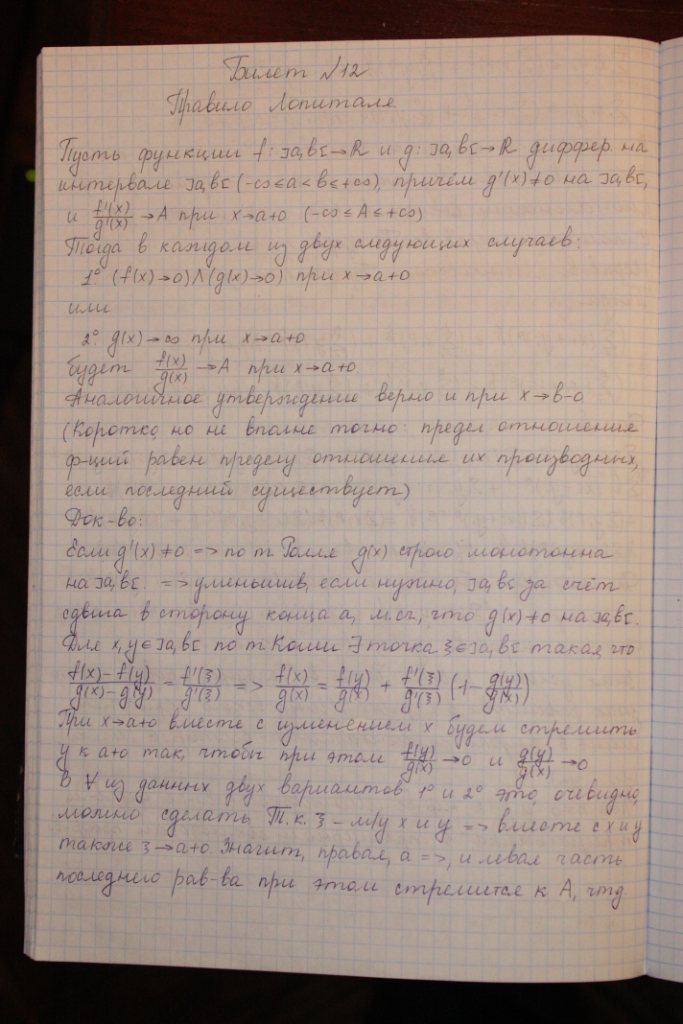 Билет №12
Правило Лопиталя
Пусть функции f: ]a,b[→R и g: ]a,b[→R диффер. на
интервале ]a,b[ (-∞≤a<b≤+∞), причём g'(x)≠0 на ]a,b[,
и f'(x)/g'(x) →A при x→a+0 (-∞≤A≤+∞)
Тогда в каждом из двух следующих случаев:
1° (f(x)→0)∧(g(x)→0) при x→a+0
или
2° g(x)→∞ при x→a+0
будет f(x)/g(x) →A при x→a+0
Аналогичное утверждение верно и при x→b-0
(Коротко, но не вполне точно: предел отношения
ф-ций равен пределу отношения их производных,
если последний существует)
Док-во:
Если g'(x)≠0 => по т. Ролля g(x) строго монотонна
на ]a,b[. => уменьшив, если нужно, ]a,b[ за счёт
сдвига в сторону конца a, м.сч, что g(x)≠0 на ]a,b[.
Для x,y∈]a,b[ по т. Коши ∃ точка ξ∈]a,b[ такая, что
f(x)-f(y)/g(x)-g(y) = f'(ξ)/g'(ξ) => f(x)/g(x) = f(y)/g(x) + f'(ξ)/g'(ξ) (1- g(y)/g(x))
При x→a+0 вместе с изменением x будем стремить
y к a+0 так, чтобы при этом f(y)/g(x) →0 и g(y)/g(x) →0
В ∀ из данных двух вариантов 1° и 2° это, очевидно,
можно сделать Т.к. ξ - м/у x и y => вместе с x и y
также ξ→a+0 Значит, правая, а =>, и левая часть
последнего рав-ва при этом стремится к A, чтд